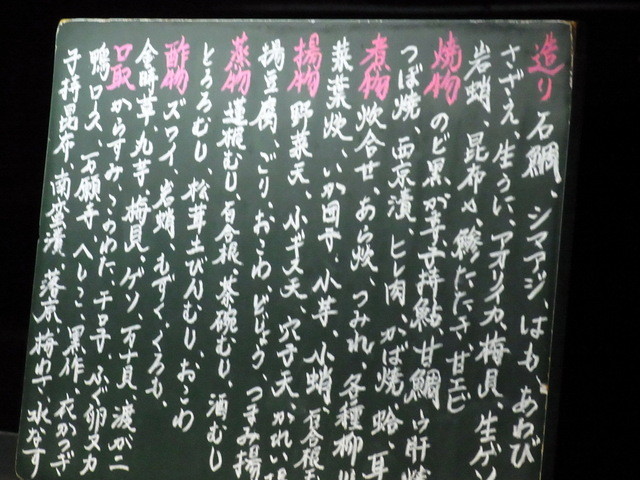 造り 石鯛、シマアジ、はも、あわび
さざえ、生うに、アオリイカ、梅貝、生ゲソ
岩蛸、昆布〆、鯵たたき、甘エビ
焼物 のど黒、が子、子持鮎、甘鯛
つぼ焼、西京漬、ヒレ肉、かば焼、蛤、耳
煮物 炊合せ、あら炊、つみれ、各種柳川
葉葉炊、いか団子、小芋、小蛸、百合根
揚物 野菜天、小ギス天、穴子天、かれい
揚豆腐、ごり、おこわ、どじょう、つまみ揚
蒸物 蓮根むし、百合根、茶碗むし、酒むし
とろろむし、松茸土びんむし、おこわ
酢物 ズワイ、岩蛸、もずく、くろも、
金時草、丸芋、梅貝、ゲソ、万十貝、渡ガニ
口取 からすみ、このわた、干口子、ふぐ卵ヌカ
鴨ロース、万願寺、へしこ、黒作、衣かつぎ、
子持昆布、南蛮漬、落京、梅わさ、水なす